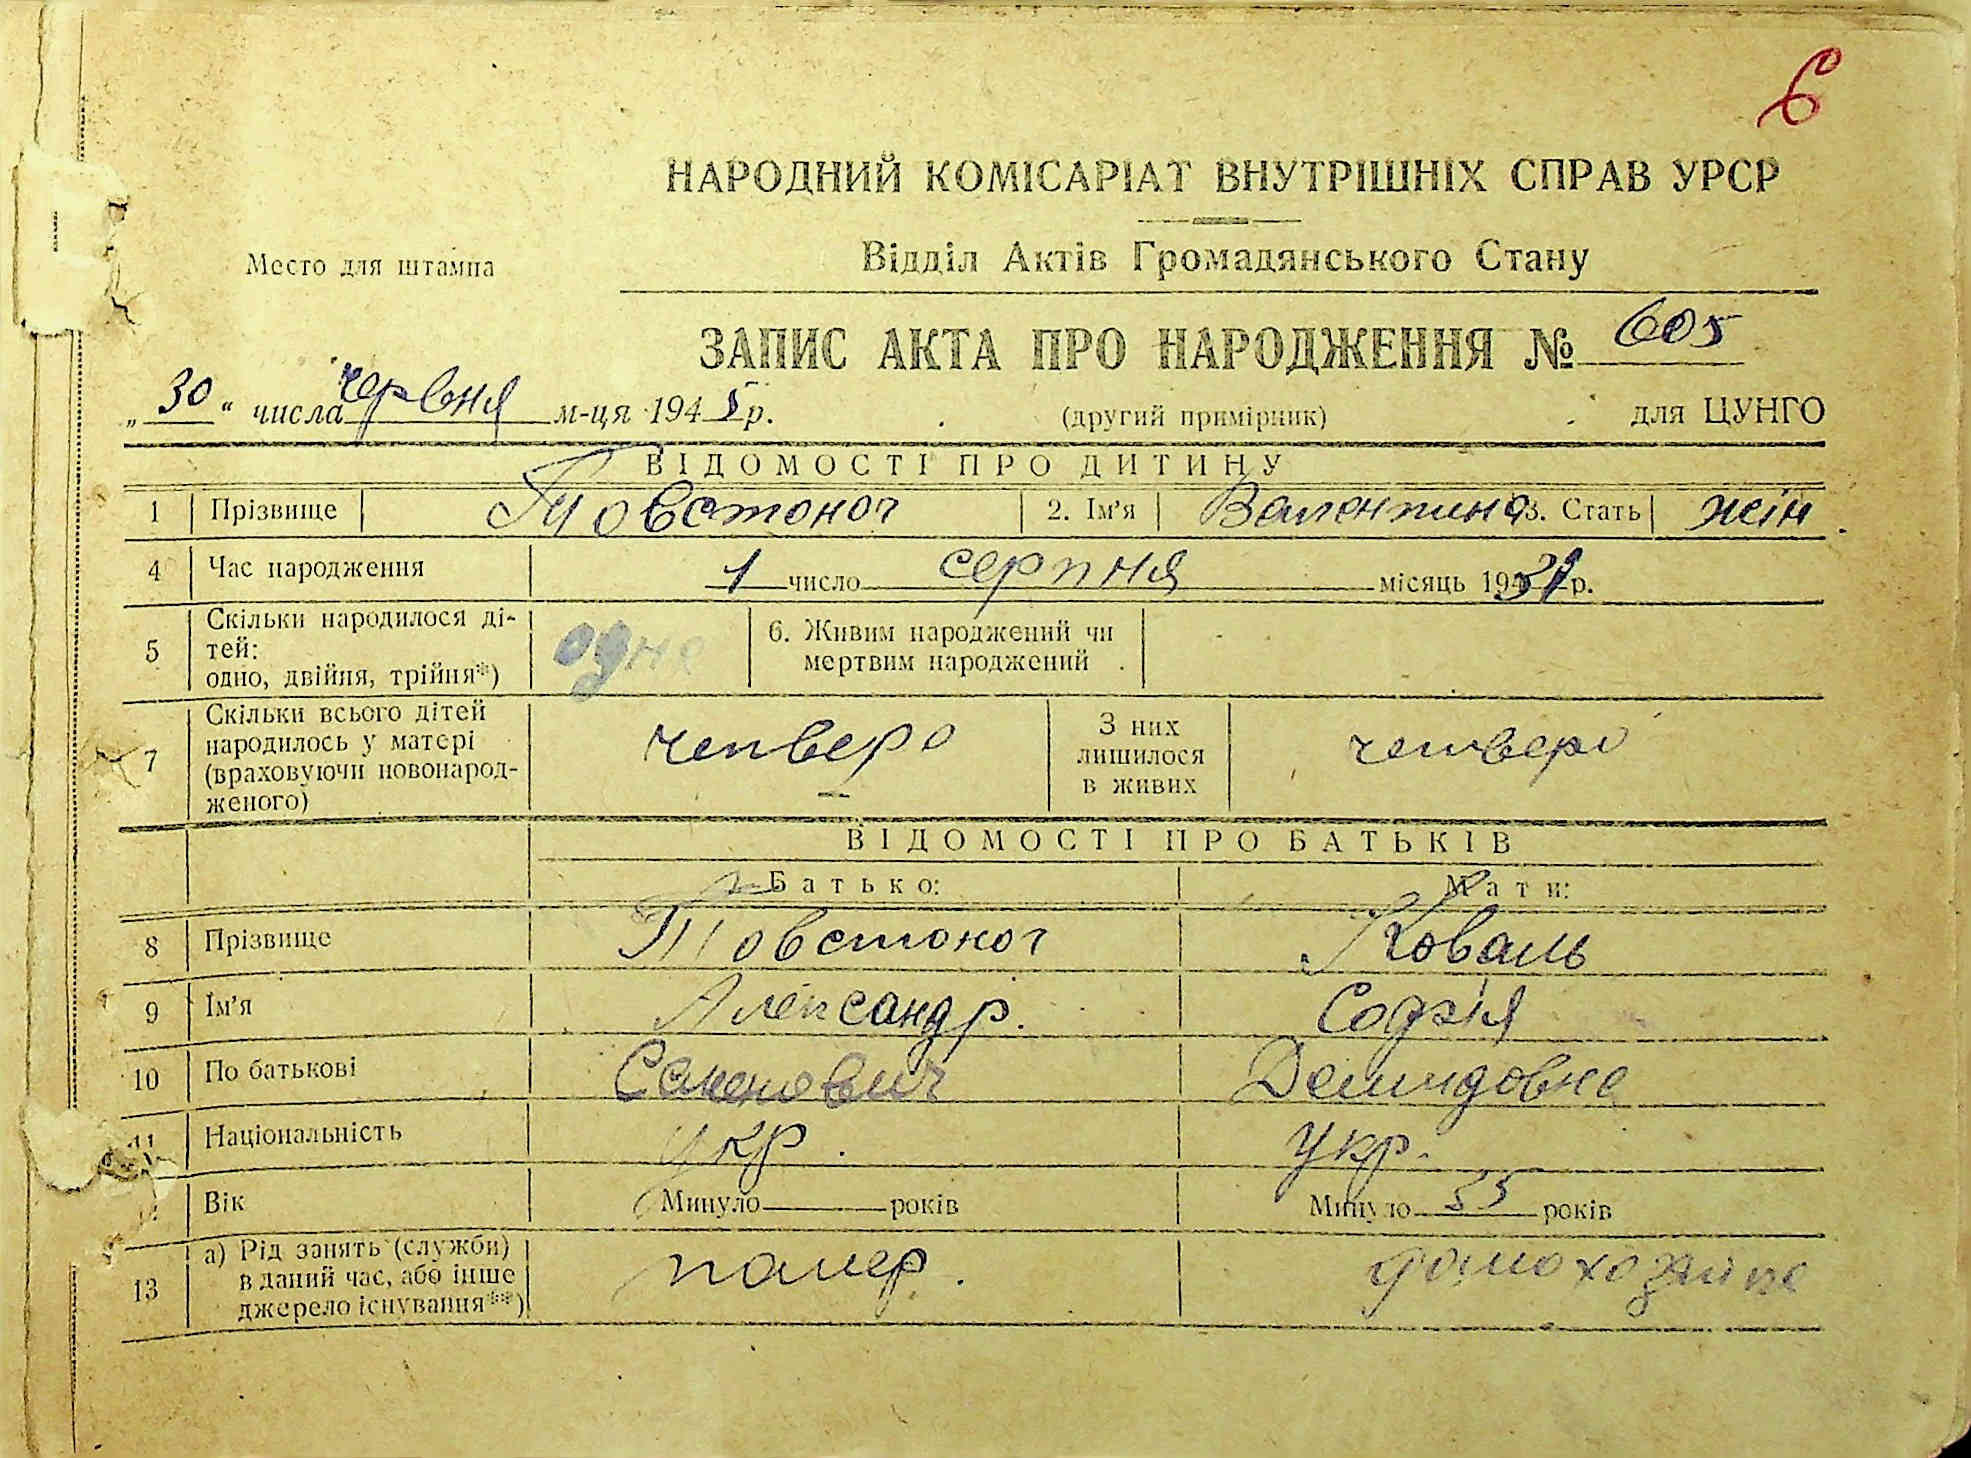 6
НАРОДНИЙ КОМІСАРІАТ ВНУТРІШНІХ СПРАВ УРСР
Место для штампа
Відділ Актів Громадянського Стану
ЗАПИС АКТА ПРО НАРОДЖЕННЯ № 605
„30“ числа червня м-ця 1945 р. (другий примірник) для ЦУНГО
ВІДОМОСТІ ПРО ДИТИНУ
1 Прізвище Товстоног 2. Ім'я Валентина 3. Стать жін.
4 Час народження 1 число серпня місяць 1931 р.
5 Скільки народилося ді-
тей:
одно, двійня, трійня*) одне
6. Живим народжений чи
мертвим народжений .
7 Скільки всього дітей
народилось у матері
(враховуючи новонарод-
женого) четверо
З них
лишилося
в живих четверо
ВІДОМОСТІ ПРО БАТЬКІВ
Батько: Мати:
8 Прізвище Товстоног Коваль
9 Ім'я Александр. Софія
10 По батькові Семенович Демидовна
11 Національність укр. Укр.
Вік Минуло років Минуло 35 років
13 а) Рід занять (служби)
в даний час, або інше
джерело існування**) помер. домохозяйка